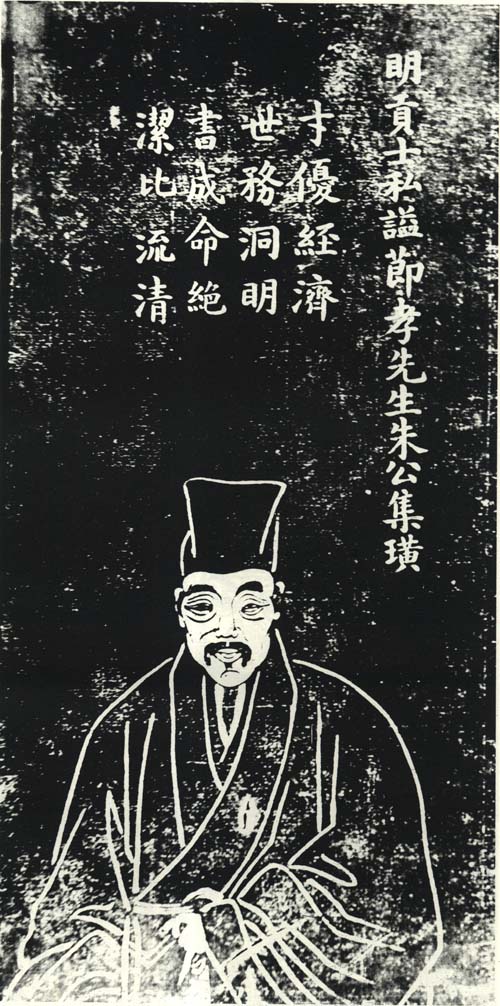 明貢士私謚節孝先生朱公集璜
才優經濟
世務洞明
書成命絕
潔比流清